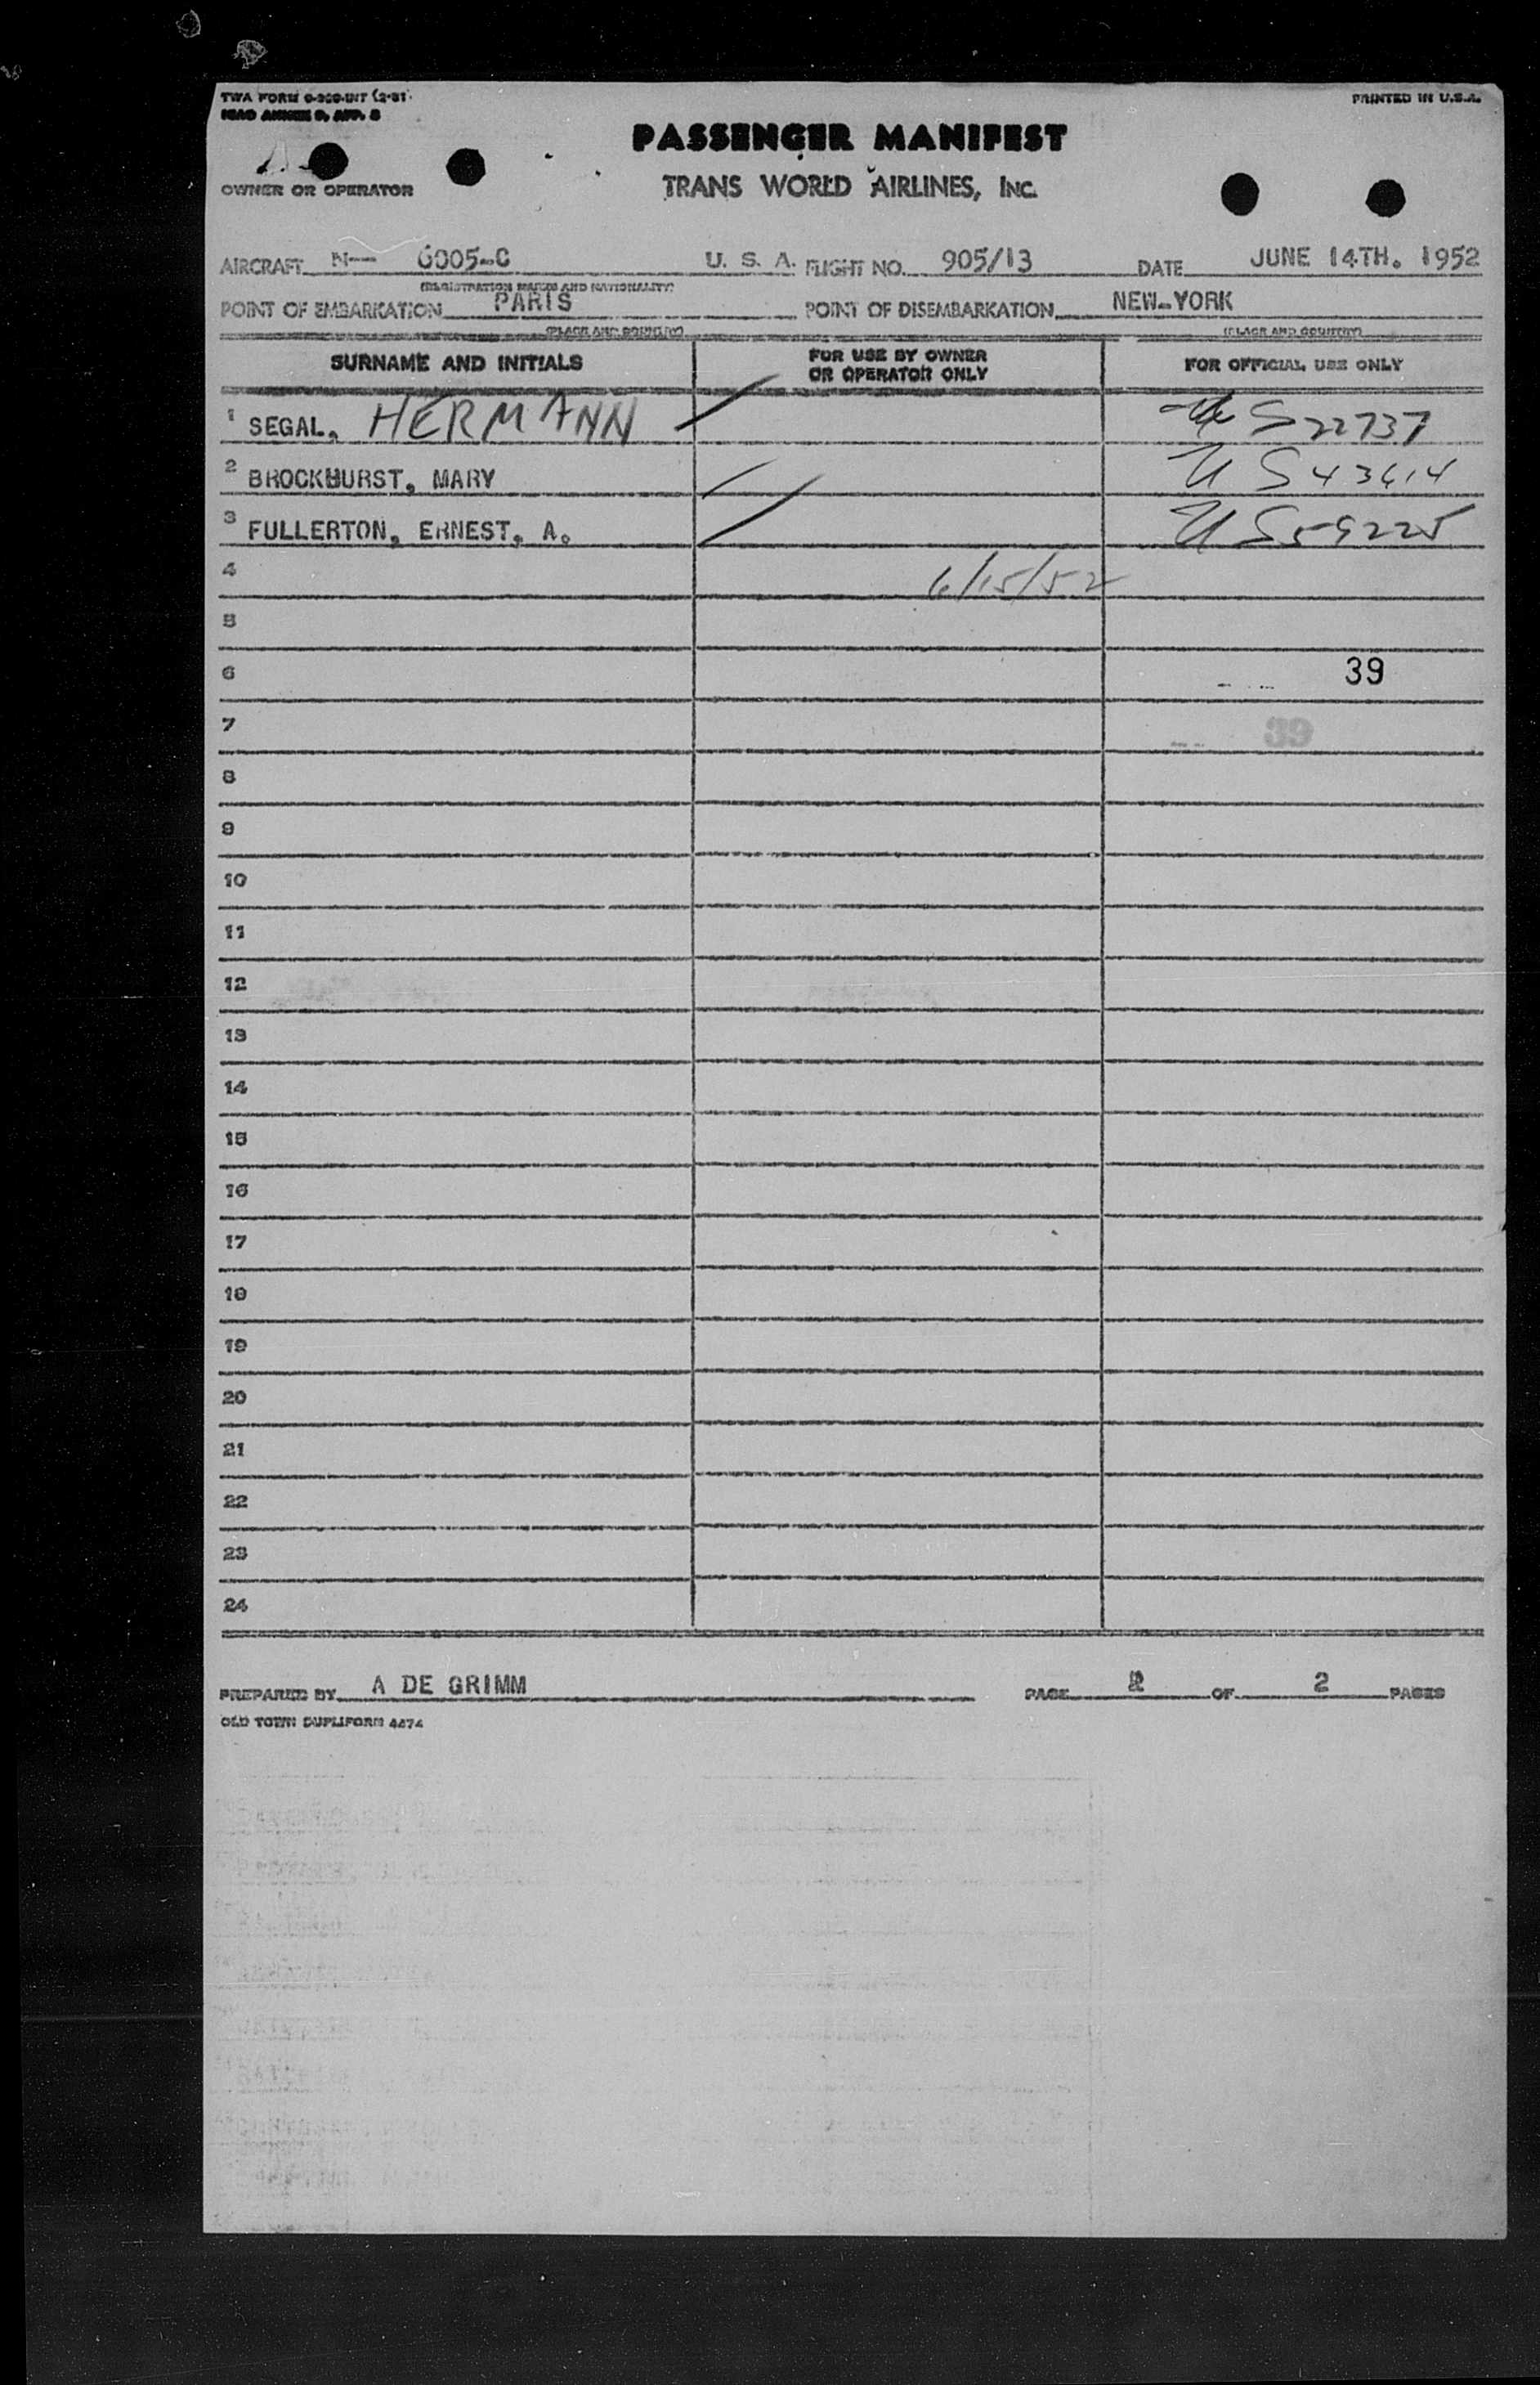 TWA FORM O-200-INT (2-51)
ICAO ANNEX 9, APP. 3
PRINTED IN U.S.A.
PASSENGER MANIFEST
OWNER OR OPERATOR
TRANS WORLD AIRLINES, INC.
AIRCRAFT N— 6005-C U. S. A. FLIGHT NO. 905/13 DATE JUNE 14TH. 1952
(REGISTRATION MARKS AND NATIONALITY)
POINT OF EMBARKATION PARIS POINT OF DISEMBARKATION NEW-YORK
(PLACE AND COUNTRY) (PLACE AND COUNTRY)
SURNAME AND INITIALS FOR USE BY OWNER OR OPERATOR ONLY FOR OFFICIAL USE ONLY
1 SEGAL, HERMANN U S 22737
2 BROCKHURST, MARY U S 43614
3 FULLERTON, ERNEST, A. U S 59225
4 6/15/52
5
6 39
7 39
8
9
10
11
12
13
14
15
16
17
18
19
20
21
22
23
24
PREPARED BY A DE GRIMM PAGE 2 OF 2 PAGES
OLD TOWN DUPLIFORM 4474